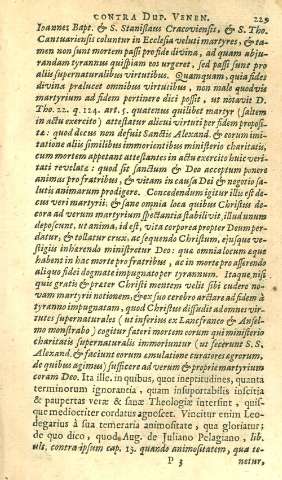 CONTRA DUP. VENEN. 229
Ioannes Bapt. & S. Stanislaus Cracoviensis, & S. Tho.
Cantuariensis coluntur in Ecclesia veluti martyres, & ta-
men non sunt mortem passi pro fide divina, ad quam abju-
randam tyrannus quispiam eos urgeret, sed passi sunt pro
aliis supernaturalibus virtutibus. Quamquam, quia fides
divina prælucet omnibus virtutibus, non malo quodvis
martyrium ad fidem pertinere dici possit, ut notavit D.
Tho. 22. q. 124. art. 5. quatenus quilibet martyr (saltem
in actu exercito) attestatur alicui virtuti per fidem proposi-
tæ: quod decus non defuit Sanctis Alexand. & eorum imi-
tatione aliis similibus immorientibus ministerio charitatis,
cum mortem appetant attestantes in actu exercito huic veri-
tati revelatæ: quod sit sanctum & Deo acceptum ponere
animas pro fratribus, & vitam in causa Dei & negotio sa-
lutis animarum prodigere. Concedendum igitur illis est de-
cus veri martyrii: & sane omnia loca quibus Christus de-
cora ad verum martyrium spectantia stabilivit, illud unum
deposcunt, ut anima, id est, vita corporea propter Deum per-
datur, & tollatur crux. ac sequendo Christum, ejusque ve-
stigiis inhærendo ministretur Deo: quæ omnia locum æque
habent in hac morte pro fratribus, ac in morte pro asserendo
aliquo fidei dogmate impugnato per tyrannum. Itaque nisi
quis gratis & præter Christi mentem velit sibi cudere no-
vam martyrii notionem, & ex suo cerebro arctare ad fidem à
tyranno impugnatam, quod Christus diffudit ad omnes vir-
tutes supernaturales (ut inferius ex Lancfranco & Ansel-
mo monstrabo) cogitur fateri mortem eorum qui ministerio
charitatis supernaturalis immoriuntur (ut fecerunt S.S.
Alexand. & faciunt eorum emulatione curatores ægrorum,
de quibus agimus) sufficere ad verum & proprie martyrium
coram Deo. Ita ille. in quibus, quot ineptitudines, quanta
terminorum ignorantia, quam insuportabilis inscitia
& paupertas veræ & sanæ Theologiæ intersint, quis-
que mediocriter cordatus agnoscet. Vincitur enim Leo-
degarius à sua temeraria animositate, qua gloriatur;
de quo dico, quod Aug. de Juliano Pelagiano, lib.
ult. contra ipsum cap. 13. quando animositatem, qua te-
P 3 netur,